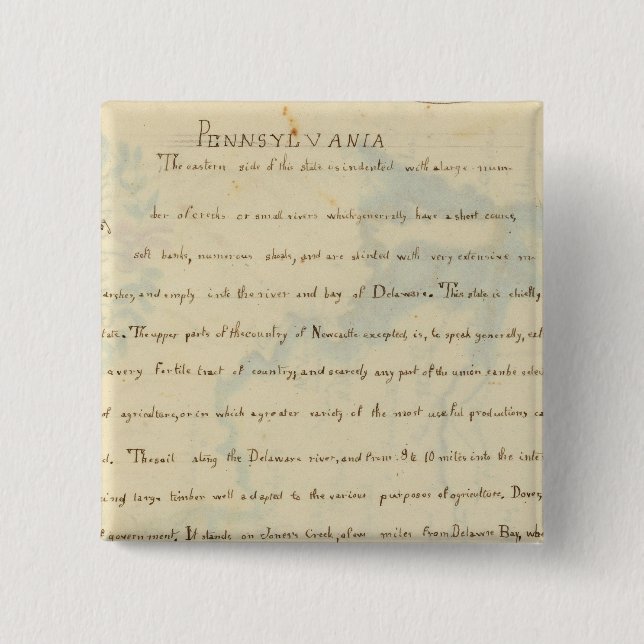 PENNSYLVANIA
The eastern side of this state is indented with a large num-
ber of creeks or small rivers which generrally have a short course,
soft banks, numerous shoals, and are skirted with very extensive m
arshes, and empty into the river and bay of Delaware. This state is chiefly
tate. The upper parts of the country of Newcastle excepted, is, to speak generally, ext
a very fertile tract of country; and scarcely any part of the union can be selec
of agriculture, or in which a greater variety of the most useful productions ca
d. The soil along the Delaware river, and from 9 to 10 miles into the inte
cing large timber well adapted to the various purposes of agriculture. Dover,
government. It stands on Jones's Creek, a few miles from Delawre Bay, whe